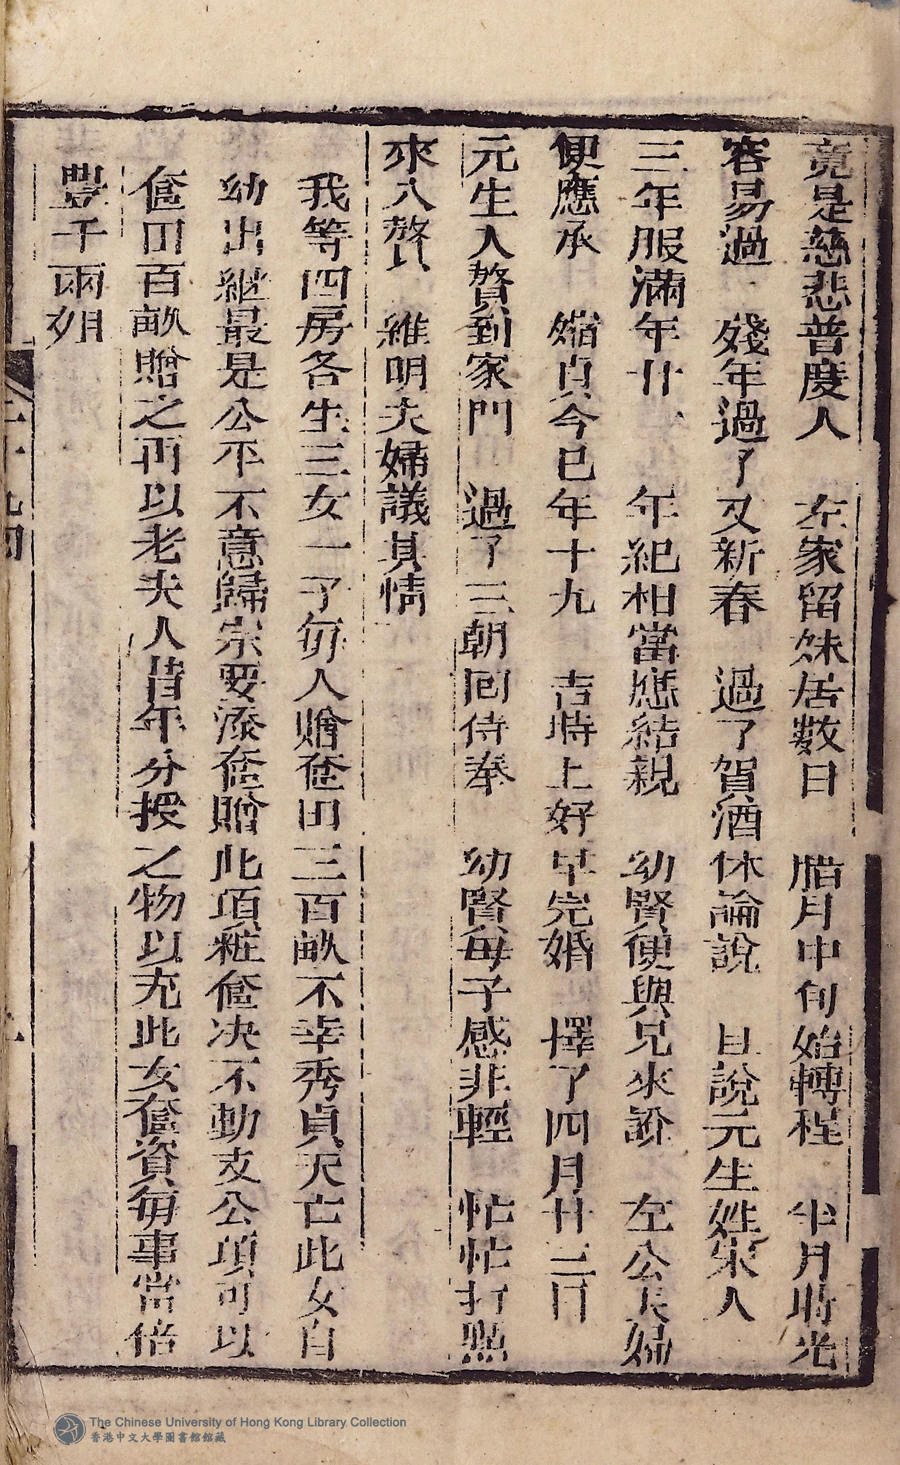 竟是慈悲普度人　左家留妹居數日　腊月中旬始轉程　半月時光
容易過　殘年過了又新春　過了賀酒休論說　且說元生姓宋人
三年服滿年廿一　年紀相當應結親　幼賢便與兄來說　左公夫婦
便應承　婚貞今巳年十九　吉時上好早完婚　擇了四月廿三日
元生入贅到家門　過了三朝囘侍奉　幼賢母子感非輕　忙忙打點
來入贅　維明夫婦議其情
我等四房各生三女一子每人贈奩田三百畝不幸秀貞夭亡此女自
幼出繼最是公平不意歸宗要添奩贈此項粧奩决不動支公項可以
奩田百畝贈之再以老夫人昔年分授之物以充此女奩資每事當倍
豐千兩姪
The Chinese University of Hong Kong Library Collection
香港中文大學圖書館館藏